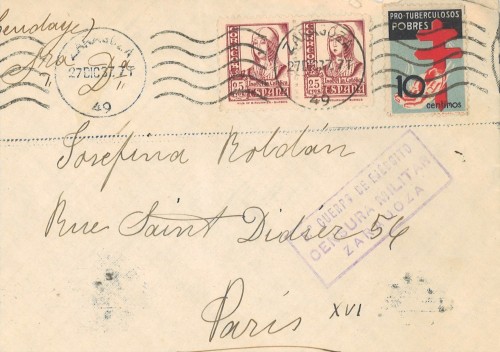 Sra Dª
Josefina Roldán
Rue Saint Didier 56
París XVI
ZARAGOZA
27 DIC 37. 7T
49
ZARAGOZA
27 DIC 37. 7T
49
25 CTS
ESPAÑA
25 CTS
ESPAÑA
PRO-TUBERCULOSOS
POBRES
10
céntimos
CUERPO DE EJERCITO
CENSURA MILITAR
ZARAGOZA